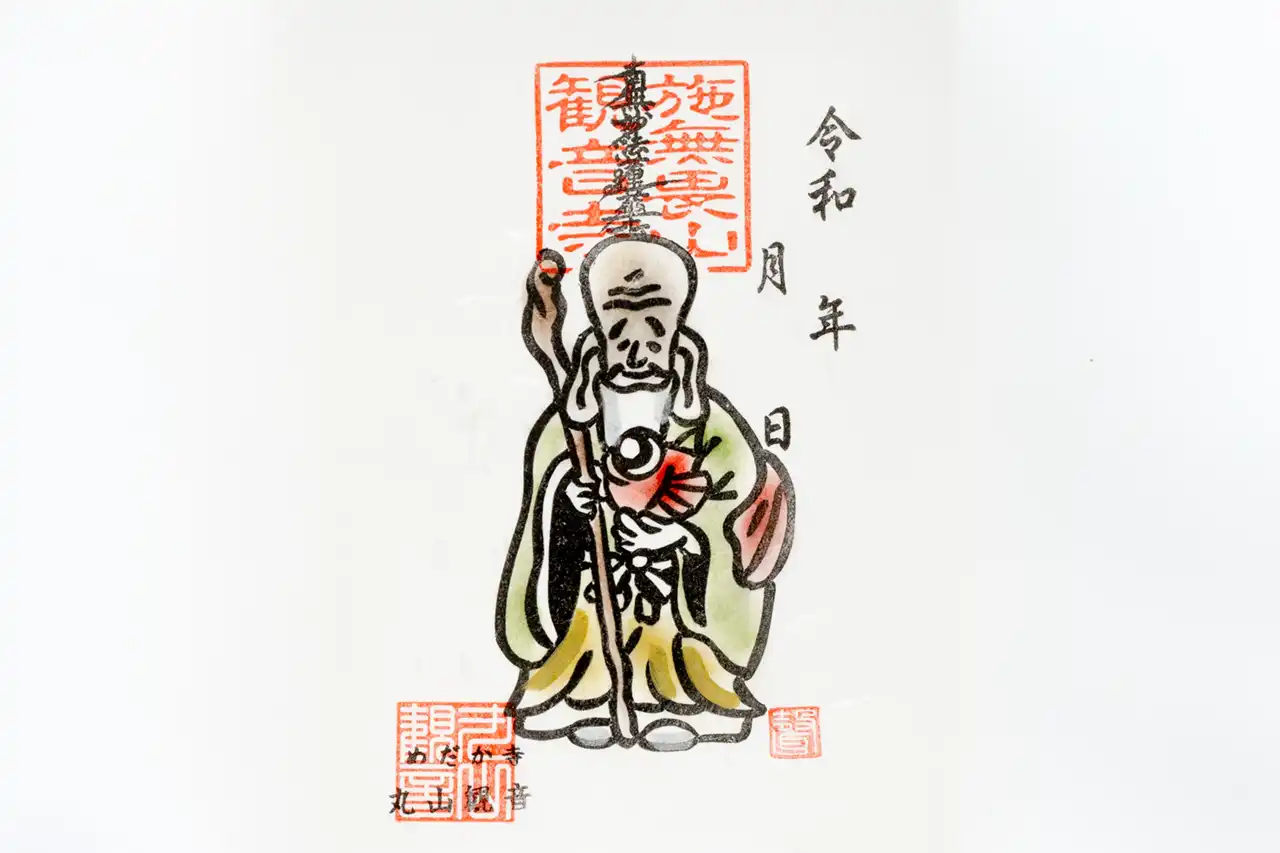 令和 年
月 日
施無畏山
観音寺
丸山
観音
めだか寺
丸山観音